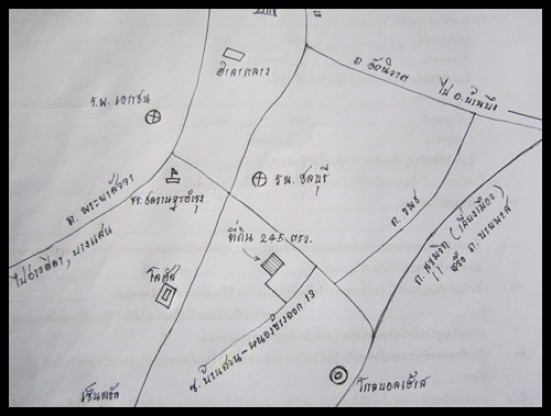 ศาลากลาง
ถ. อัคนิวาต
ไป อ.บ้านบึง
ร.พ. เอกชน
ร.พ. ชลบุรี
ถ. พระยาสัจจา
รร. ชลราษฎรอำรุง
ที่ดิน 245 ตรว.
ไปอ่างศิลา, บางแสน
โลตัส
ถ. สุขุมวิท (เลี่ยงเมือง)
หรือ ถ. บายพาส
ซ. บ้านสวน-หนองข้างคอก 13
โกลบอลเฮ้าส์
เซ็นทรัล